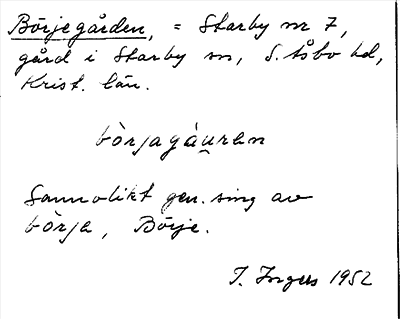 Börjegården, = Starby nr 7,
gård i Starby sn, S. Åsbo hd,
Krist. län.
bòrjagàu̯ren
Sannolikt gen. sing av
bòrja, Börje.
I. Ingers 1952